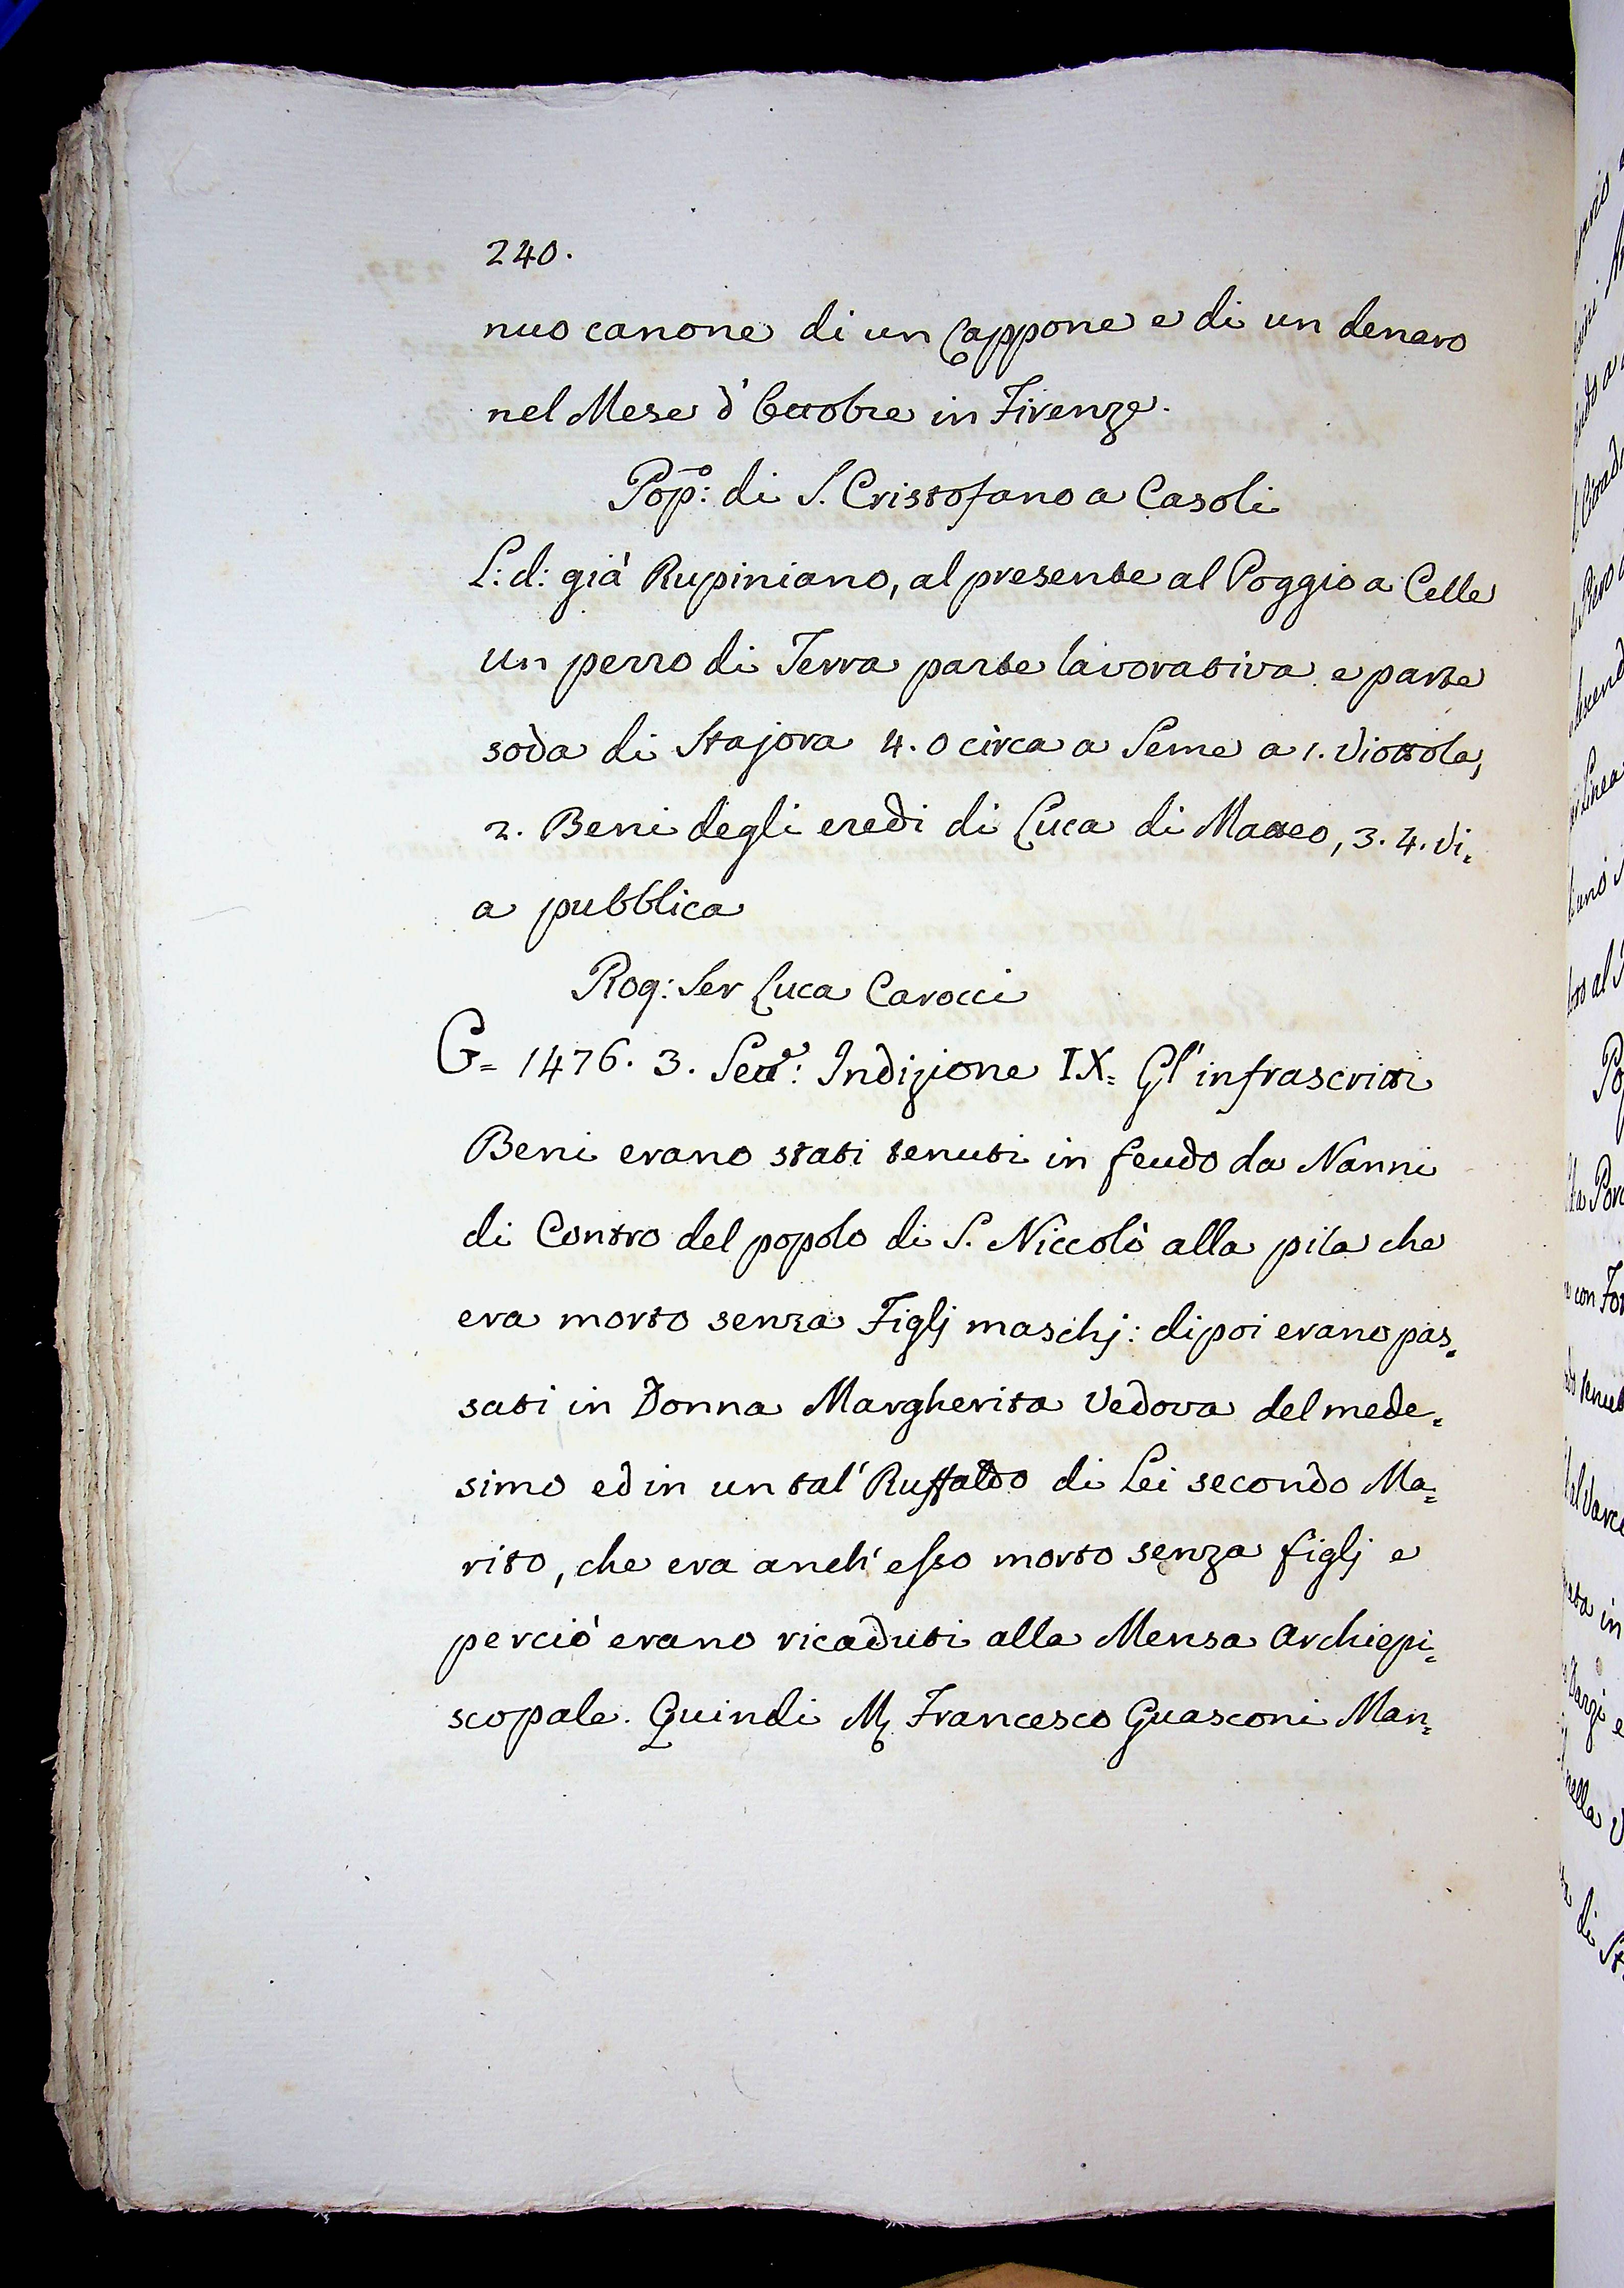 240.
nuo canone di un Cappone e di un denaro
nel Mese d'Ottobre in Firenze.
Pop:º di S. Cristofano a Casoli
L: d: già Rupiniano, al presente al Poggio a Celle
un pezzo di Terra parte lavorativa e parte
soda di Stajora 4. o circa a Seme a 1. Viottola,
2. Beni degli eredi di Luca di Matteo, 3. 4. Vi=
a pubblica
Rog: Ser Luca Carocci
G= 1476. 3. Sett:e Indizione IX= Gl'infrascritti
Beni erano stati tenuti in feudo da Nanni
di Contro del popolo di S. Niccolò alla pila che
era morto senza Figlj maschj: dipoi erano pas=
sati in Donna Margherita Vedova del mede=
simo ed in un tal' Ruffaldo di Lei secondo Ma=
rito, che era anch'esso morto senza figlj e
perciò erano ricaduti alla Mensa Archiepi=
scopale. Quindi M. Francesco Guasconi Man=